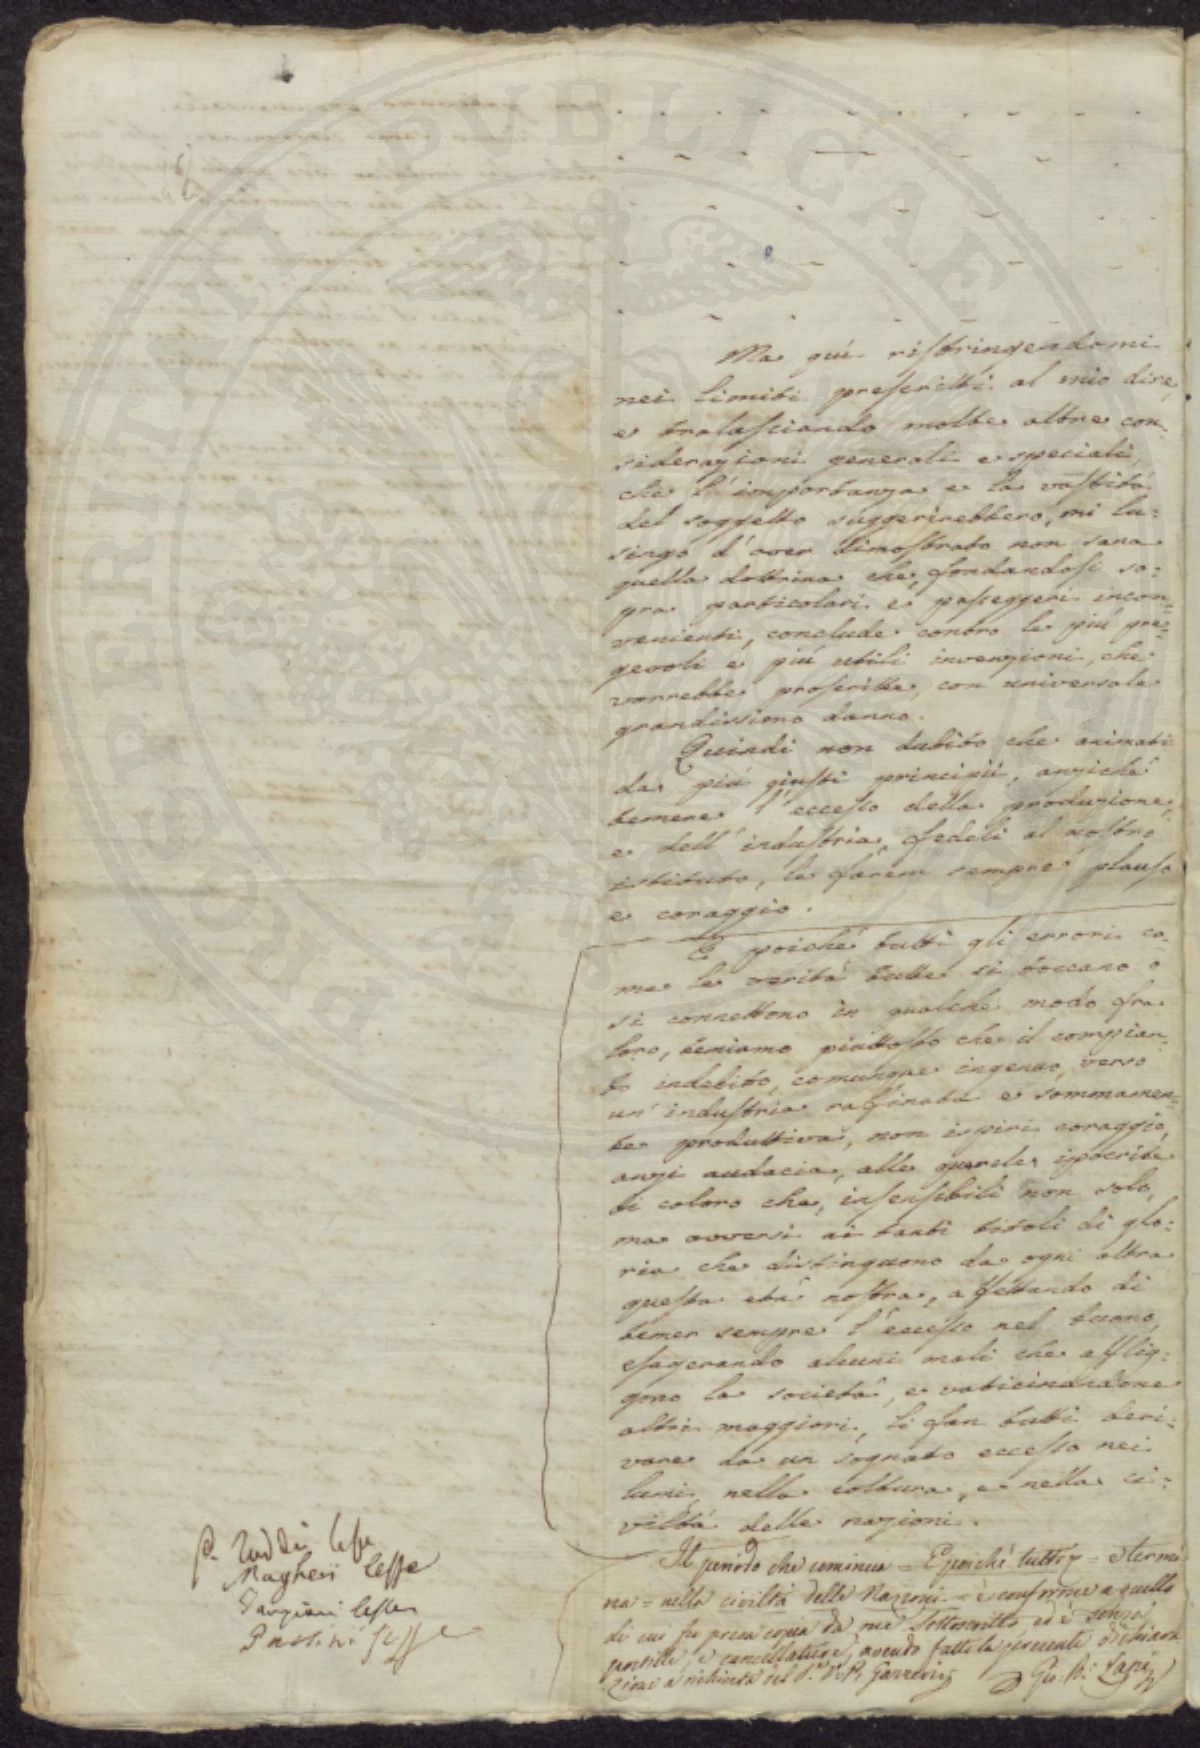 Ma quì ristringendomi
nei limiti prescritti al mio dire,
e tralasciando molte altre con-
siderazioni generali e speciali,
che l'importanza e la vastità
del soggetto suggerirebbero, mi lu-
singo d'aver dimostrato non sana
quella dottrina che, fondandosi so-
pra particolari e passeggeri incon-
venienti, conclude contro le più pre-
gevoli e più utili invenzioni, che
vorrebbe proscritte, con universale
grandissimo danno.
Quindi non dubito che animati
da più giusti principii, anziché
temere l'eccesso della produzione,
e dell'industria, fedeli al nostro
istituto, le farem sempre plauso
e coraggio.
E poiché tutti gli errori co-
me le verità tutte si toccano o
si connettono in qualche modo fra
loro, temiamo piuttosto che il compian-
to indebito, comunque ingenuo, verso
un'industria raffinata e sommamen-
te produttiva, non ispiri coraggio,
anzi audacia, alle querele ipocrite
di coloro che, insensibili non solo,
ma avversi ai tanti titoli di glo-
ria che distinguono da ogni altra
questa età nostra, affettando di
temer sempre l'eccesso nel buono,
esagerando alcuni mali che afflig-
gono la società, e vaticinandone
altri maggiori, li fan tutti deri-
vare da un sognato eccesso nei
lumi, nella coltura, e nella ci-
viltà delle nazioni.
Il periodo che comincia = E poiché tutti = e termi
na = nella civiltà delle Nazioni = è conforme a quello
di cui fu presa copia da me sottoscritto, ed è senza
postille, e cancellature, avendo fatto la presente dichiara
zione a richiesta del
Gio. B. Lapi
P. Taddei
Magheri